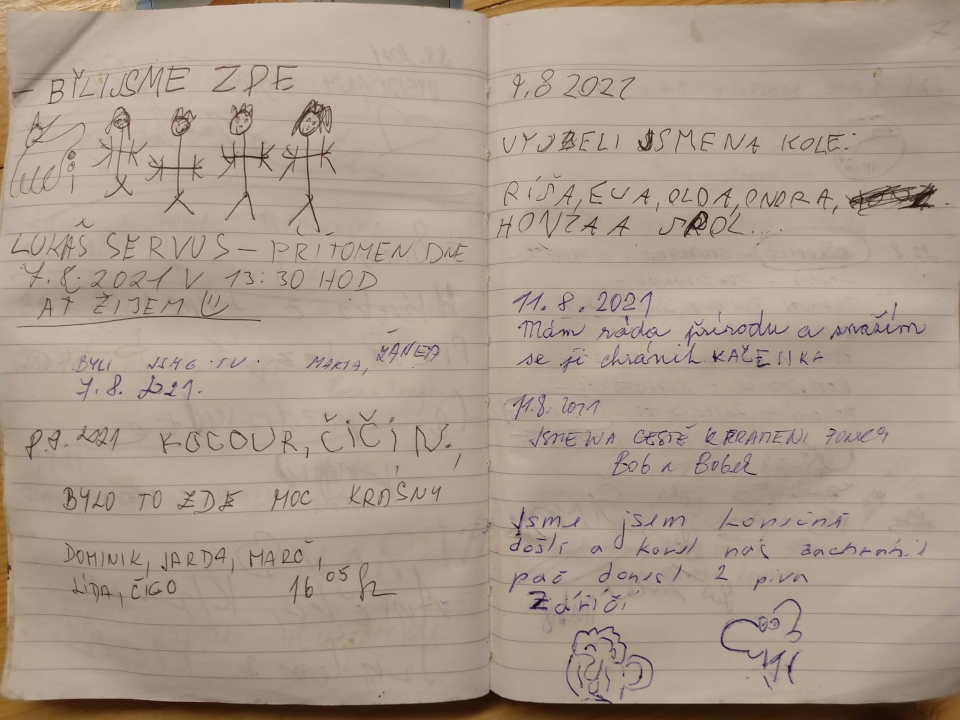 - BYLI JSME ZDE
LUKÁŠ SERVUS - PŘÍTOMEN DNE
7.8.2021 V 13:30 HOD
AŤ ŽIJEM
BYLI JSME TU. MARTA, ŽANETA
7.8.2021.
2021 KOCOUR, ČIČIN,
BYLO TO ZDE MOC KRÁSNÝ
DOMINIK, JARDA, MARČ,
LÍDA, ČIGO 16 05
9.8 2021
VYJELI JSME NA KOLE:
RÍŠA, EVA, OLDA, ONDRA,
HONZA A
11.8.2021
Mám ráda přírodu a snažím
se ji chránit KAČENKA
11.8.2021
JSME NA CESTĚ K PRAMENI
BOB A BOBEK
Jsme jsem konečně
došli a karel nás zachránil
pač donesl 2 piva
Zářičí